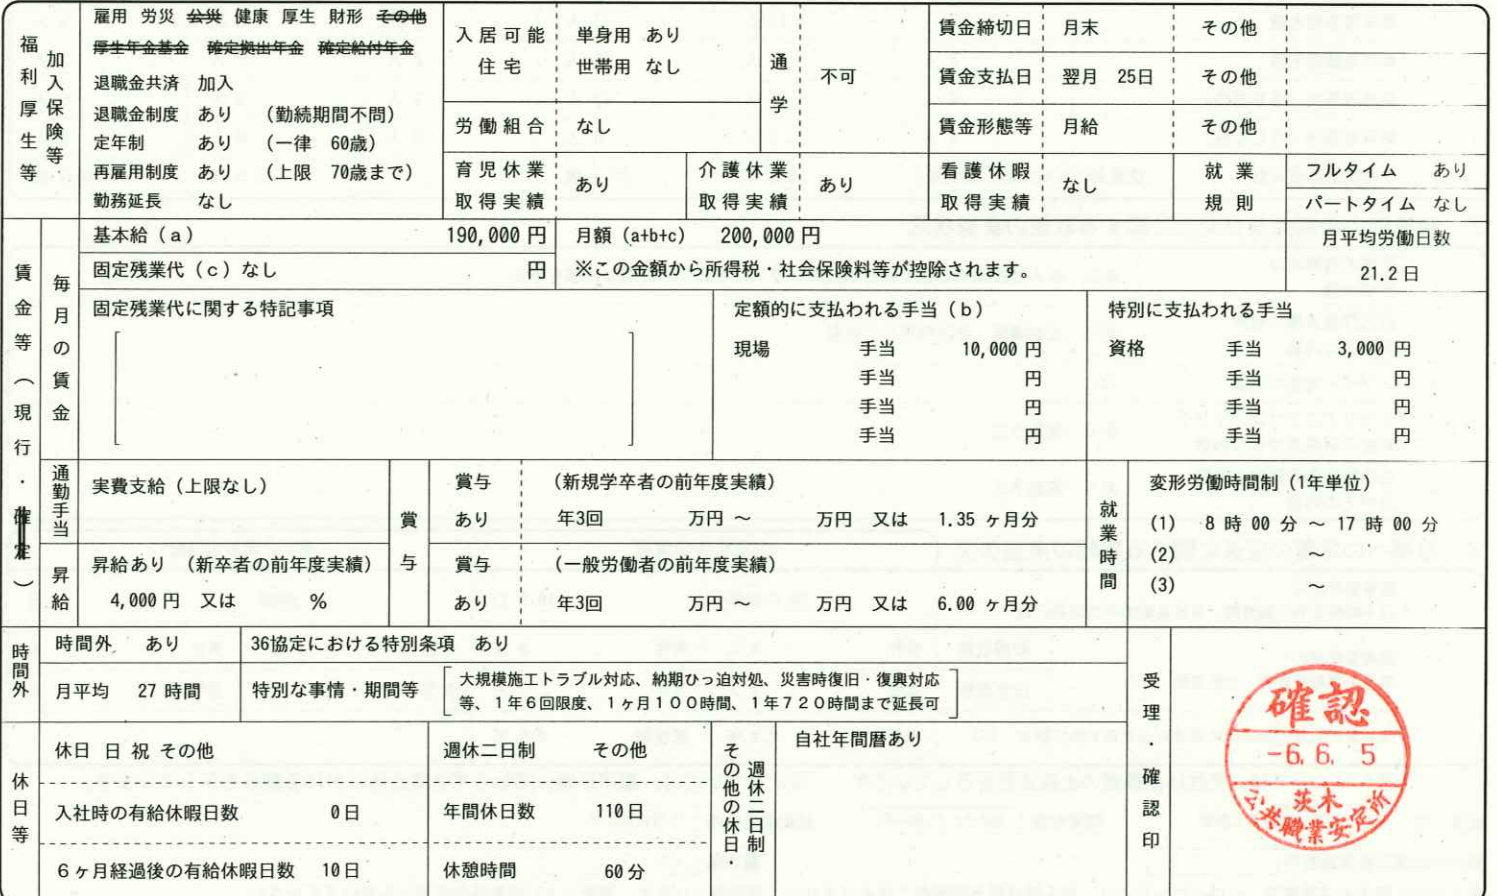 福利厚生等
加入保険等
雇用 労災 公災 健康 厚生 財形 その他
厚生年金基金 確定拠出年金 確定給付年金
退職金共済 加入
退職金制度 あり (勤続期間不問)
定年制 あり (一律 60歳)
再雇用制度 あり (上限 70歳まで)
勤務延長 なし
入居可能住宅
単身用 あり
世帯用 なし
労働組合 なし
通学 不可
賃金締切日 月末 その他
賃金支払日 翌月 25日 その他
賃金形態等 月給 その他
育児休業取得実績 あり
介護休業取得実績 あり
看護休暇取得実績 なし
就業規則
フルタイム あり
パートタイム なし
賃金等(現行・確定)
毎月の賃金
基本給(a) 190,000円
月額(a+b+c) 200,000円
月平均労働日数
21.2日
固定残業代(c)なし 円
※この金額から所得税・社会保険料等が控除されます。
固定残業代に関する特記事項
定額的に支払われる手当(b)
現場 手当 10,000円
手当 円
手当 円
手当 円
特別に支払われる手当
資格 手当 3,000円
手当 円
手当 円
手当 円
通勤手当
実費支給(上限なし)
昇給
昇給あり (新卒者の前年度実績)
4,000円 又は %
賞与
賞与 (新規学卒者の前年度実績)
あり 年3回 万円 ~ 万円 又は 1.35 ヶ月分
賞与 (一般労働者の前年度実績)
あり 年3回 万円 ~ 万円 又は 6.00 ヶ月分
就業時間
変形労働時間制(1年単位)
(1) 8時00分 ~ 17時00分
(2) ~
(3) ~
時間外
時間外 あり
月平均 27時間
36協定における特別条項 あり
特別な事情・期間等
大規模施工トラブル対応、納期ひっ迫対処、災害時復旧・復興対応
等、1年6回限度、1ヶ月100時間、1年720時間まで延長可
休日等
休日 日 祝 その他
入社時の有給休暇日数 0日
6ヶ月経過後の有給休暇日数 10日
週休二日制 その他
年間休日数 110日
休憩時間 60分
週休二日制
その他の休日・
自社年間暦あり
受理・確認印
確認
-6.6.5
茨木
公共職業安定所